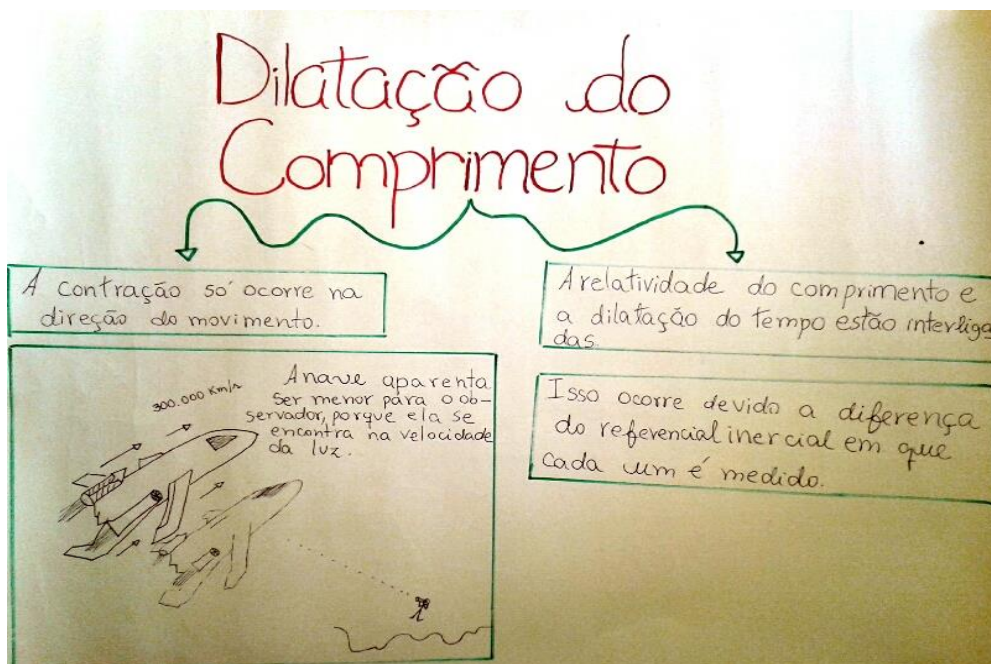 Dilatação do
Comprimento
A contração só ocorre na
direção do movimento.
300.000 Km/s
A nave aparenta
ser menor para o ob-
servador, porque ela se
encontra na velocidade
da luz.
A relatividade do comprimento e
a dilatação do tempo estão interliga
das.
Isso ocorre devido a diferença
do referencial inercial em que
cada um é medido.